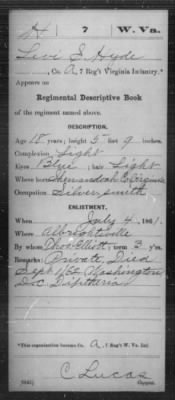 H 7 W. Va.
Levi S Hyde
, Co. A, 7 Reg't Virginia Infantry.*
Appears on
Regimental Descriptive Book
of the regiment named above.
DESCRIPTION.
Age 18 years; height 5 feet 9 inches.
Complexion Light
Eyes Blue; hair Light
Where born Shenandoah Co Virginia
Occupation Silver smith
ENLISTMENT.
When July 4, 1861.
Where Albrightsville
By whom Elliott; term 3 y'rs.
Remarks: Private, Died
Sept 1/62 Washington
D.C. Diptheria
*This organization became Co. A, 7 Reg't W. Va. Inf.
C. Lucas
Copyist.